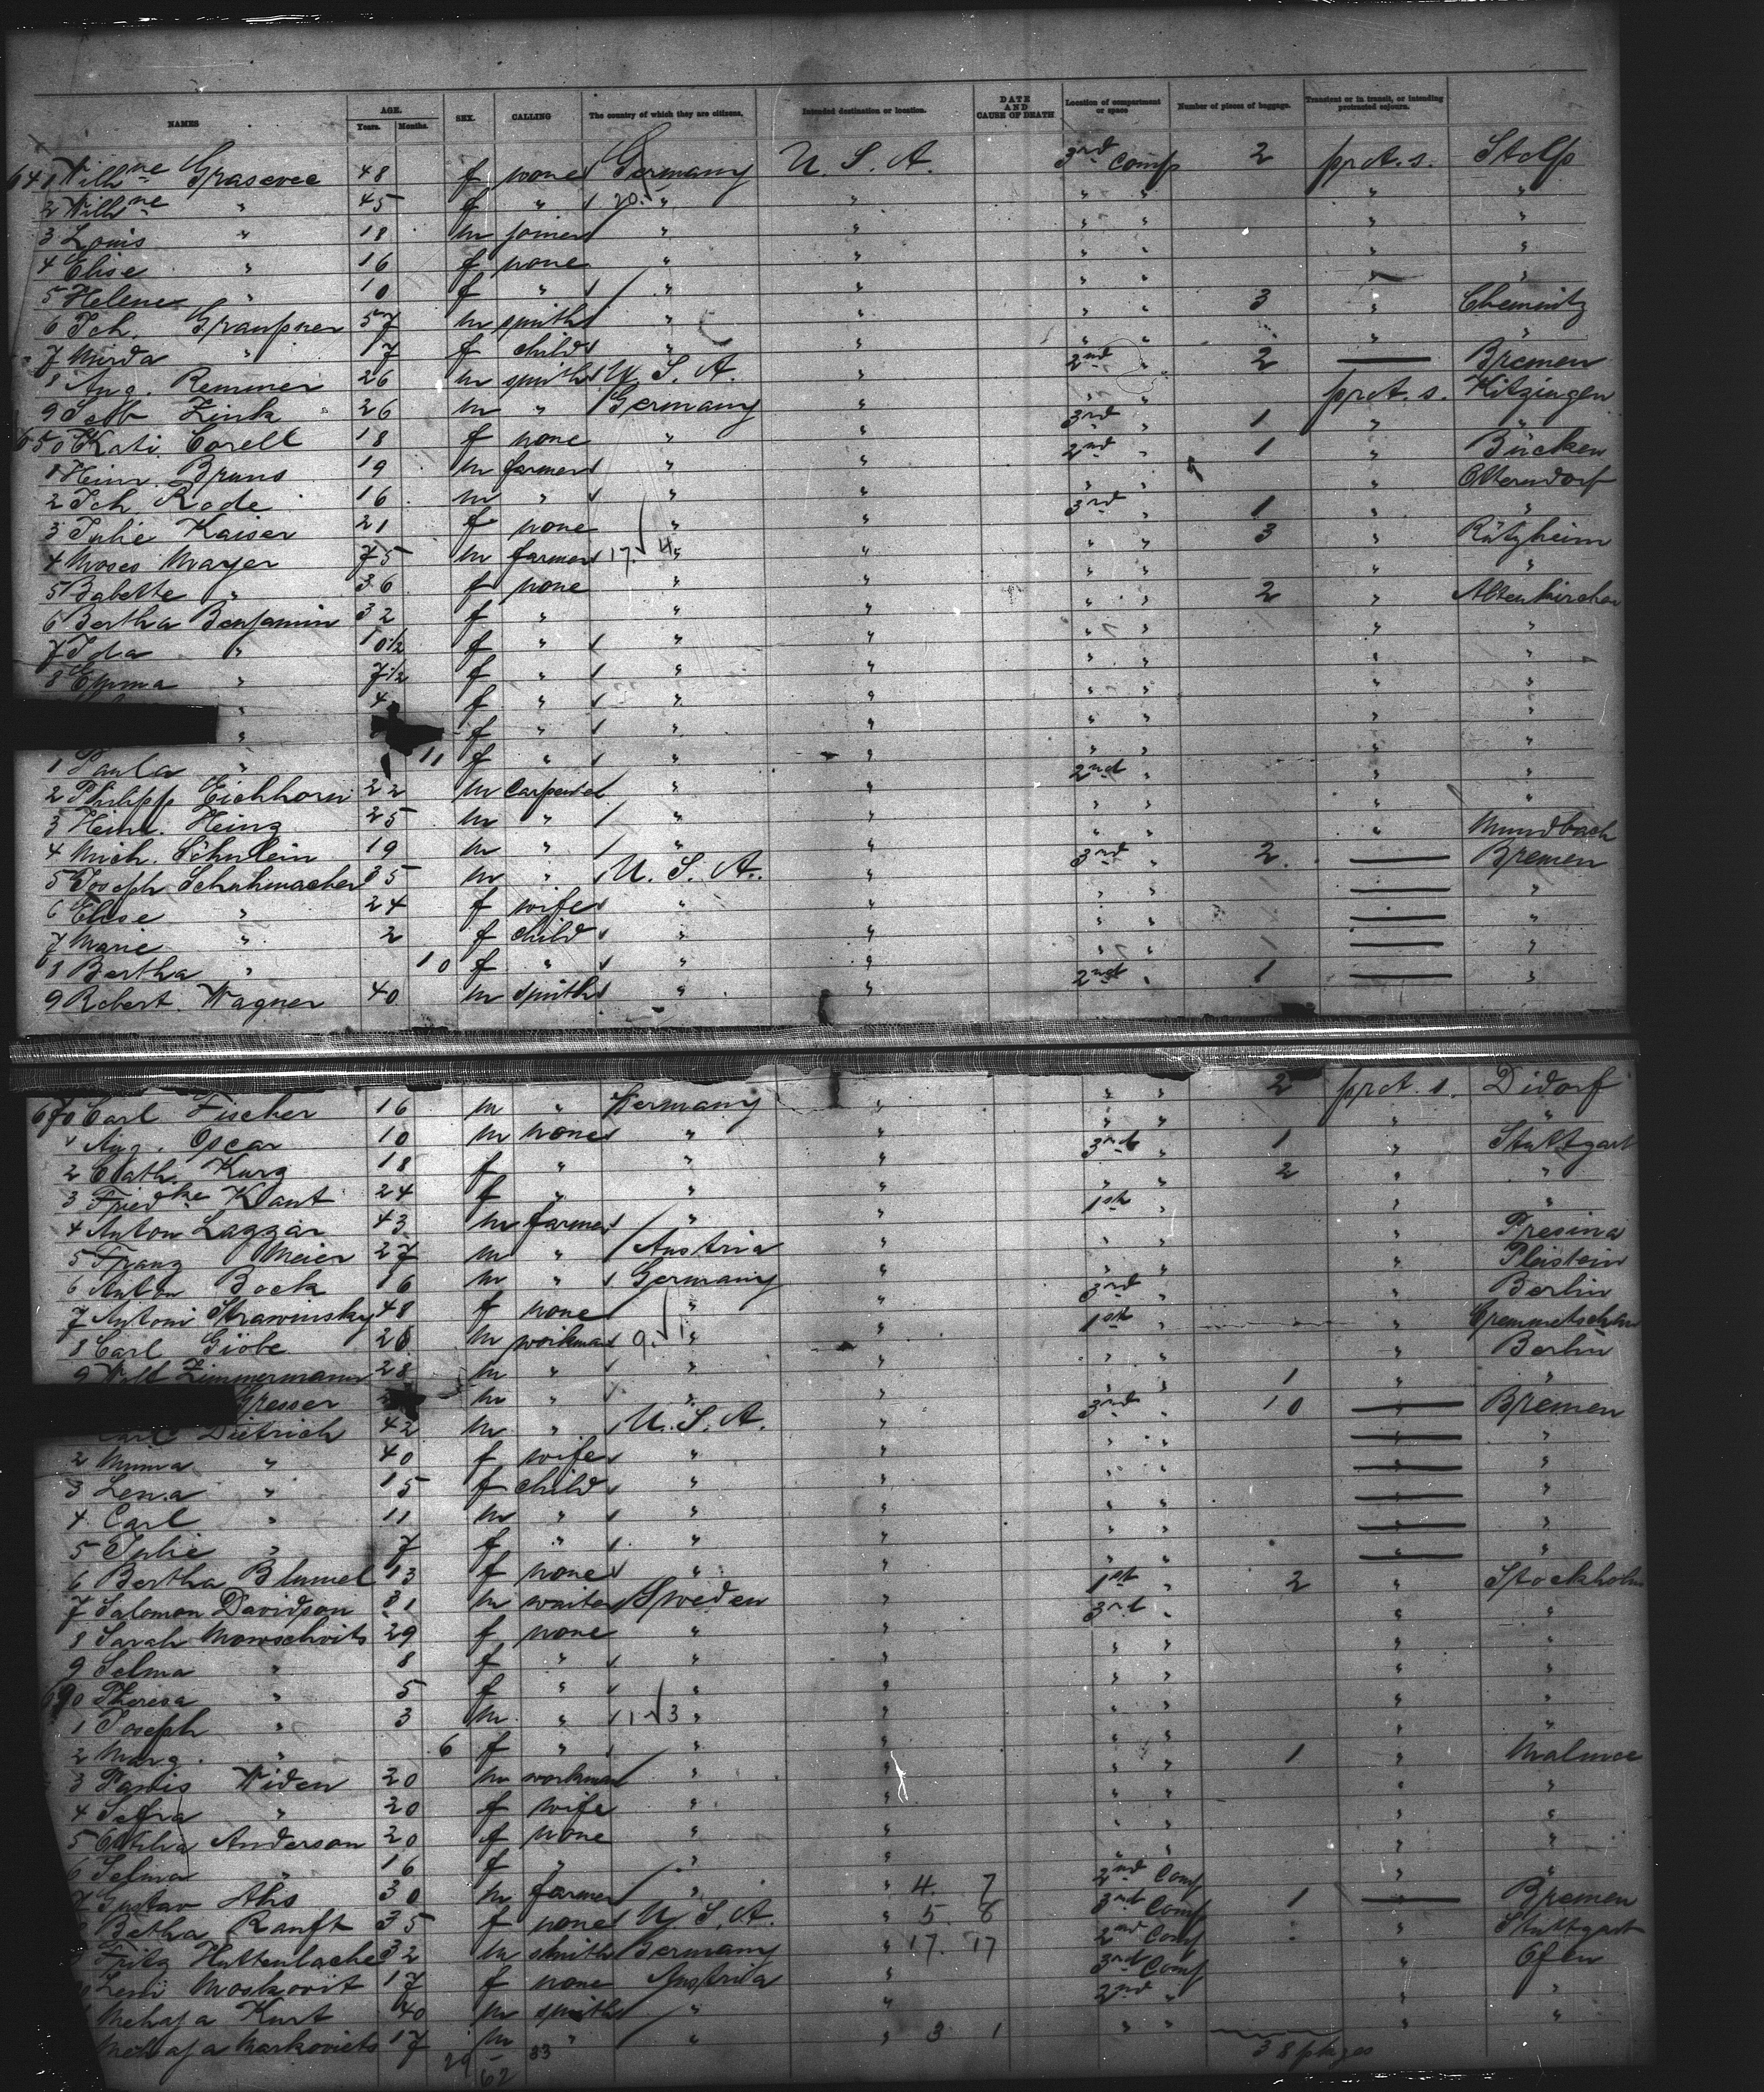 NAMES AGE. Years. Months. SEX. CALLING The country of which they are citizens. Intended destination or location. DATE AND CAUSE OF DEATH Location of compartment or space Number of pieces of baggage. Transient or in transit, or intending protracted sojourn.
641 Wilhne 48 f none Germany U. S. A. 3rd Comp 2 prot. s. Stolp
2 Wilhne " 45 f " 20. " " " " " "
3 Louis " 18 m joiner " " " " " "
4 Elise " 16 f none " " " " " "
5 Helene " 10 f " " " " " " "
6 Joh. Graupner 57 m smith " " " " 3 " Chemnitz
7 " 17 f child " " " " " "
8 Aug. Remmer 26 m smith U. S. A. " 2nd " 2 — Bremen
9 Zink 26 m " Germany " " " prot. s. Kitzingen
650 Kati Corell 18 f none " " 3rd " 1 " "
1 Heinr. Bruns 19 m farmer " " 2nd " 1 " Bücken
2 Joh. Rode 16 m " " " " " " Otterndorf
3 Julie Kaiser 21 f none " " 3rd " 1 " "
4 Moses Mayer 75 m farmer 17. 4. " " " " 3 " Rülzheim
5 Babette " 36 f none " " " " " "
6 Bertha Benjamin 32 f " " " " " 2 " Altenkirchen
7 Ida " 10 1/2 f " " " " " " "
8 Emma " 7 1/2 f " " " " " " "
" 4 f " " " " " " "
" f " " " " " " "
1 Paula " 11 f " " " " " " "
2 Philipp Eichhorn 22 m carpent " " 2nd " " "
3 Heinr. Heinz 25 m " " " " " " "
4 Mich. Schulein 19 m " " " " " "
5 Joseph Schuhmacher 35 m " U. S. A. " 3rd " 2. — Bremen
6 Elise " 24 f wife " " " " — "
7 Marie " 2 f child " " " " — "
8 Bertha " 10 f " " " " " — "
9 Robert Wagner 40 m smith " " 2nd " 1 — "
670 Carl Fischer 16 m " Germany " " " 2 prot. s. Didorf
1 Aug. Oscar 10 m none " " " " " "
2 Cath. Kurz 18 f " " " 3rd " 1 " Stuttgart
3 Friedke Kant 24 f " " " " " 2 " "
4 Anton Lazzar 43 m farmer " " 1st " " "
5 Franz Meier 27 m " Austria " " " " Presina
6 Anton Bock 16 m " Germany " " " " Pleistein
7 Antoni Strawinsky 48 f none " " 3rd " " Berlin
8 Carl 26 m workman 9. 1. " " 1st " "
9 Zimmermann 28 m " " " " " " Berlin
m " " " " " 1 " "
Carl Dietrich 42 m " U. S. A. " 3rd " 10 — Bremen
2 Minna " 40 f wife " " " " — "
3 Lena " 15 f child " " " " — "
4 Carl " 11 m " " " " " — "
5 Julie " 7 f " " " " " — "
6 Bertha Blumel 13 f none " " " " — "
7 Salomon Davidson 31 m waiter Sweden " 1st " 2 " Stockholm
8 Sarah 29 f none " " 3rd " " "
9 Selma " 8 f " " " " " " "
690 Theresa " 5 f " " " " " " "
1 Joseph " 3 m " 11 3 " " " " " "
2 Marg. " 6 f " " " " " " "
3 Widen 20 m workman " " " " 1 " Malmoe
4 " 20 f wife " " " " " "
5 Anderson 20 f none " " " " " "
6 Selma " 16 f " " " " " " "
7 Gustav 30 m farmer " " 4. 7 2nd Comp " "
8 Betha Ranft 35 f none U. S. A. " 5. 8 3rd Comp 1 — Bremen
Fritz 32 m smith Germany " 17. 17 2nd Comp " Stuttgart
Leni Moskovit 17 f none Austria " 3rd Comp " Ofen
Kurt 40 m smith " " 2nd " " "
Markoviets 17 m " " " 3 1 " " " "
29 33
62